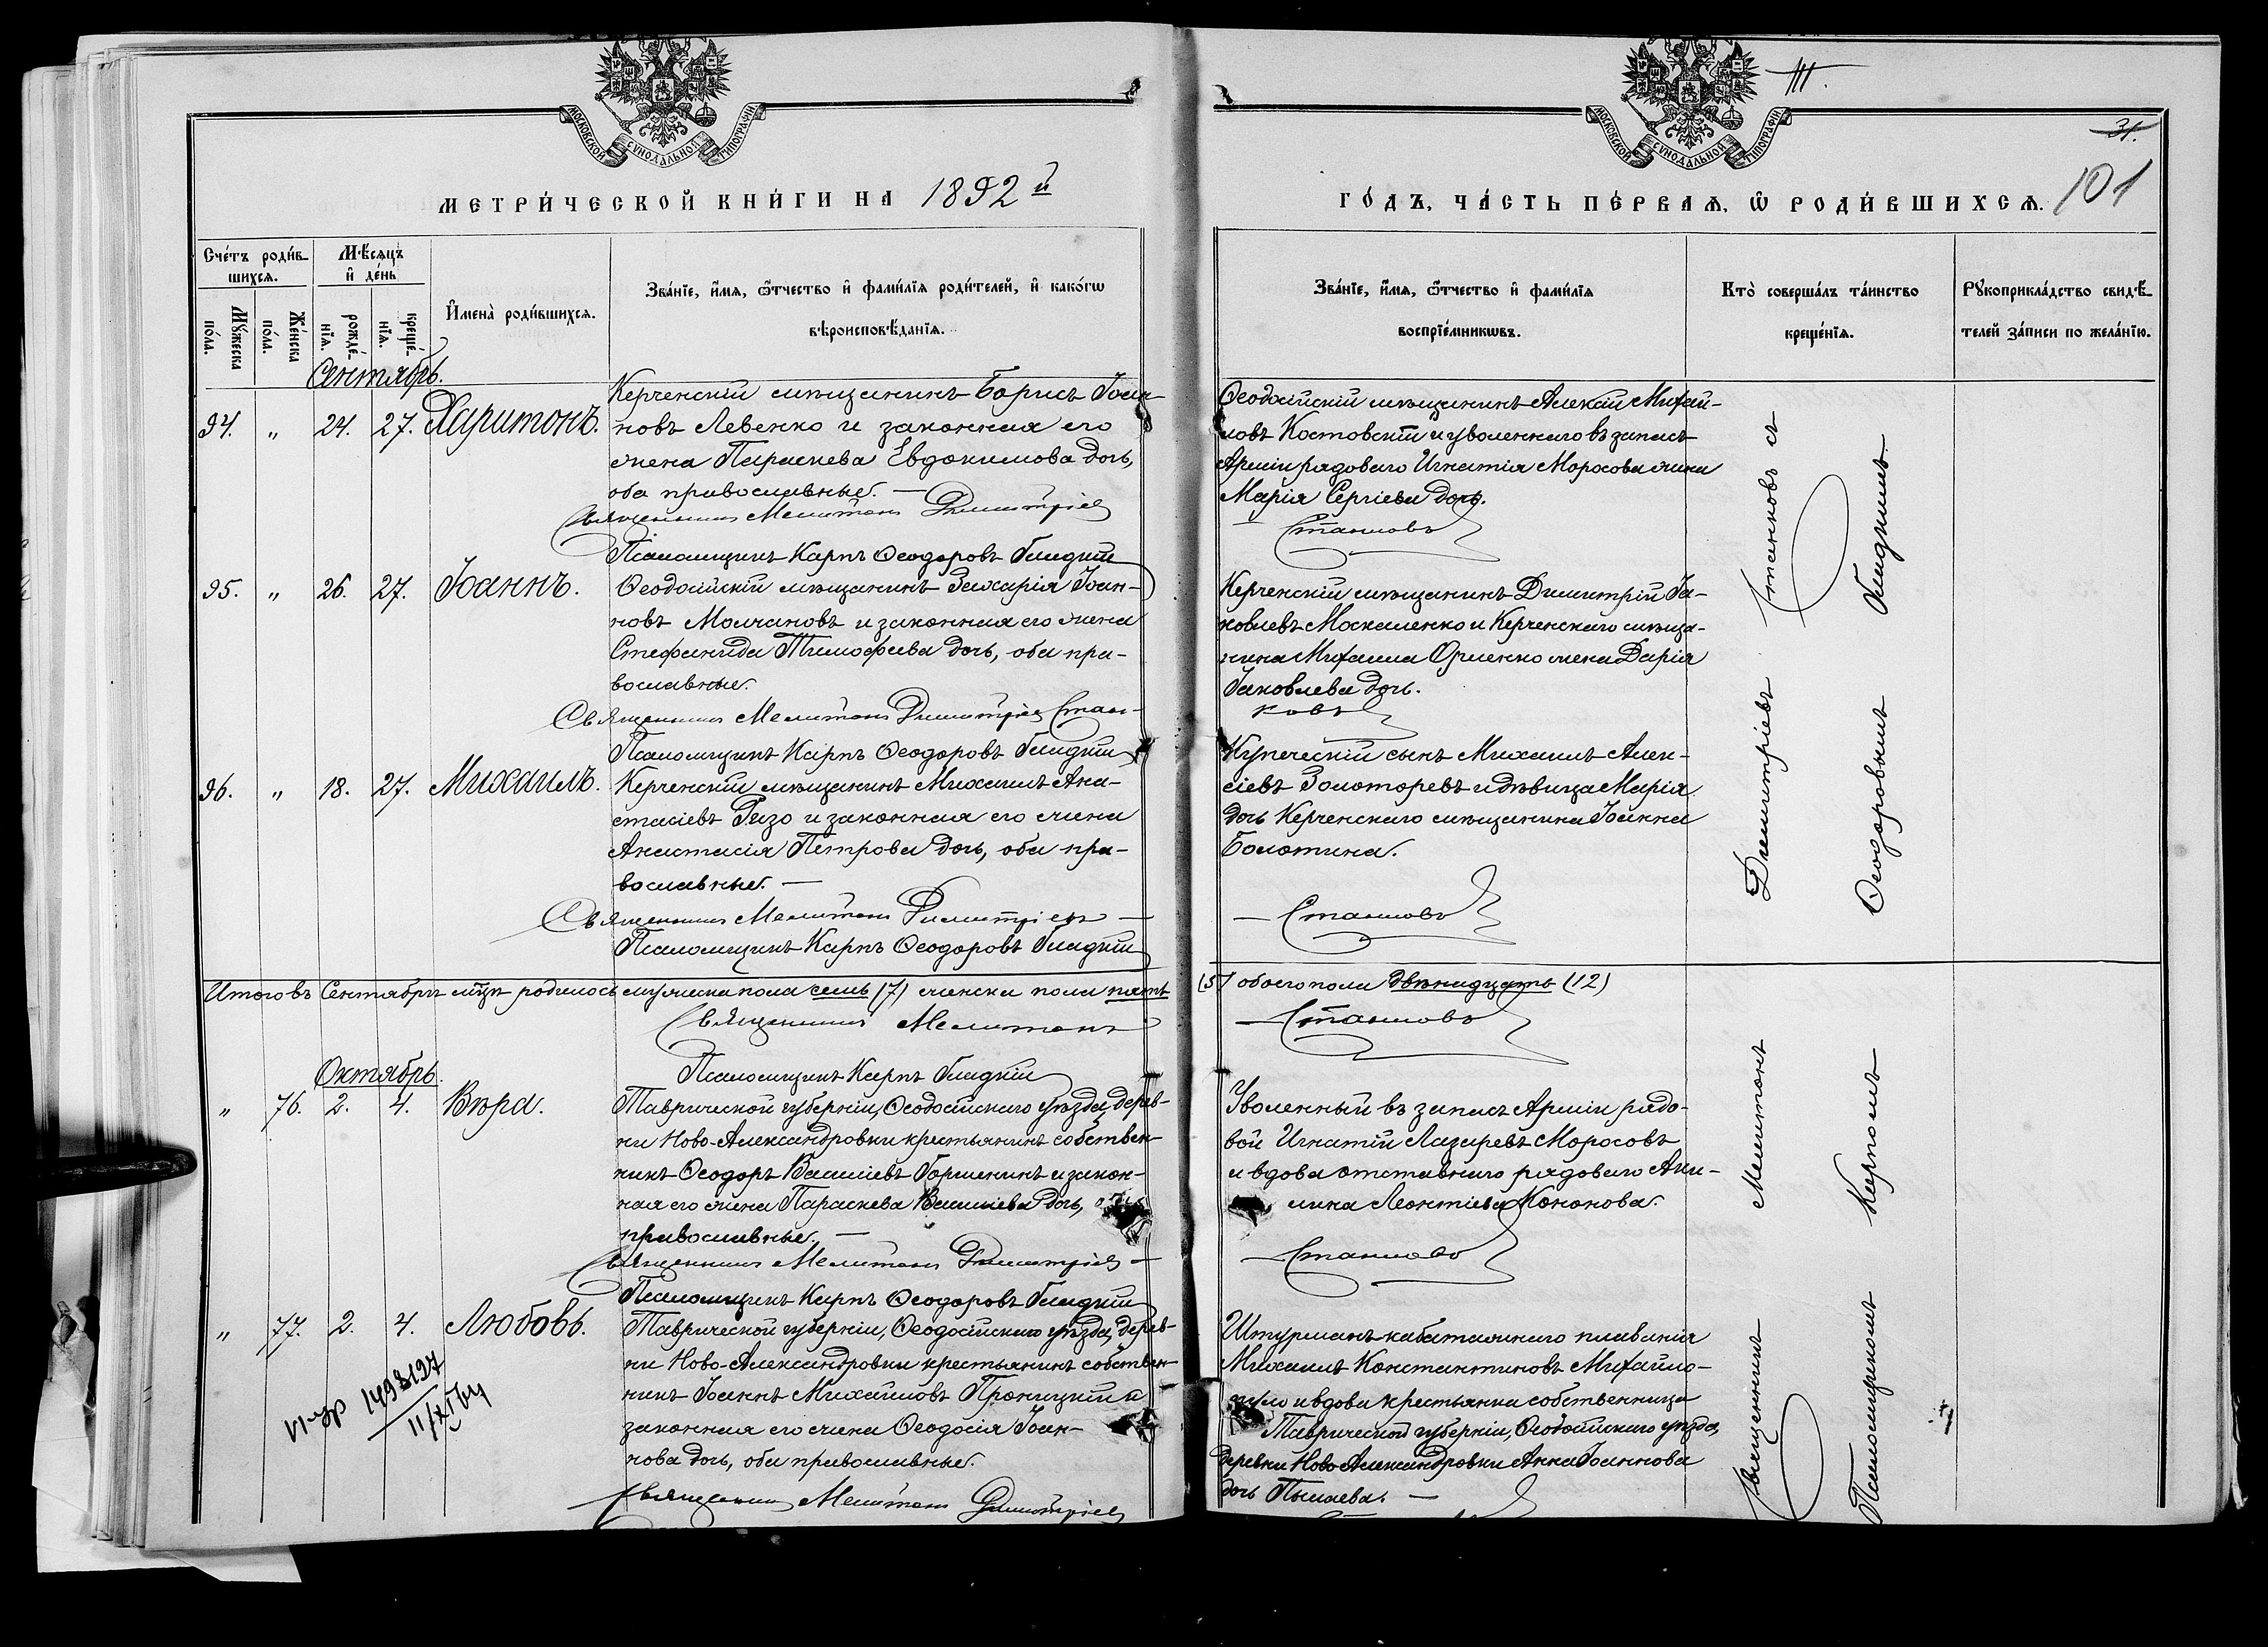 МОСКОВСКОЙ СѴНОДАЛЬНОЙ ТИПОГРАФІИ
МЕТРИ́ЧЕСКОЙ КНИ́ГИ НА 1892 й
Сче́тъ роди́в-
шихся.
Мѣ́сяцъ
и҆ де́нь
Мꙋ́жеска
по́ла.
Же́нска
по́ла.
рожде́-
нїѧ.
креще́-
нїѧ.
И҆мена̀ роди́вшихсѧ.
Зва́нїе, и҆́мѧ, ѻ҆́тчество и҆ фами́лїѧ роди́телей, и҆ како́гѡ
вѣроисповѣ́данїѧ.
Сентябрь.
94. " 24. 27. Харитонъ.
Керченскій мѣщанинъ Борисъ Іоан-
новъ Левенко и законная его
жена Параскева Евдокимова дочь,
оба православные. —
Священникъ Мелитонъ Димитріевъ
Псаломщикъ Карпъ Ѳеодоровъ Гладкій
95. " 26. 27. Іоаннъ.
Ѳеодосійскій мѣщанинъ Захарія Іоан-
новъ Молчановъ и законная его жена
Стефанида Тимофеева дочь, оба пра-
вославные.
Священникъ Мелитонъ Димитріевъ Стан-
Псаломщикъ Карпъ Ѳеодоровъ Гладкій
96. " 18. 27. Михаилъ.
Керченскій мѣщанинъ Михаилъ Ана-
стасіевъ Ризо и законная его жена
Анастасія Петрова дочь, оба пра-
вославные. —
Священникъ Мелитонъ Димитріевъ —
Псаломщикъ Карпъ Ѳеодоровъ Гладкій
Итого въ Сентябрѣ м-цѣ родилось мужеска пола семь (7) женска пола пять
Священникъ Мелитонъ
Псаломщикъ Карпъ Гладкій
Октябрь.
" 76. 2. 4. Вѣра.
Таврической губерніи, Ѳеодосійскаго уѣзда, дерев-
ни Ново-Александровки крестьянинъ собствен-
никъ Ѳеодоръ Василіевъ Горшенинъ и закон-
ная его жена Параскева Василіева дочь, оба
православные. —
Священникъ Мелитонъ Димитріевъ —
Псаломщикъ Карпъ Ѳеодоровъ Гладкій
" 77. 2. 4. Любовь.
Таврической губерніи, Ѳеодосійскаго уѣзда, дерев-
ни Ново-Александровки крестьянинъ собствен-
никъ Іоаннъ Михайловъ Проницкій и
законная его жена Ѳеодосія Іоан-
нова дочь, оба православные.
Священникъ Мелитонъ Димитріевъ
МОСКОВСКОЙ СѴНОДАЛЬНОЙ ТИПОГРАФІИ
III.
31.
101
ГО́ДЪ, ЧА́СТЬ ПЕ́РВАѦ, Ѡ҆ РОДИ́ВШИХСѦ.
Зва́нїе, и҆́мѧ, ѻ҆́тчество и҆ фами́лїѧ
воспрїе́мникѡвъ.
Кто̀ соверша́лъ та́инство
креще́нїѧ.
Рꙋкоприкла́дство свидѣ́-
телей за́писи по жела́нїю.
Ѳеодосійскій мѣщанинъ Алексій Михай-
ловъ Костовскій и уволеннаго въ запасъ
Арміи рядоваго Игнатія Моросова жена
Марія Сергіева дочь.
Станковъ
Керченскій мѣщанинъ Димитрій Іа-
ковлевъ Москаленко и Керченскаго мѣща-
нина Михаила Орленко жена Дарія
Іаковлева дочь.
ковъ
Купеческій сынъ Михаилъ Алек-
сіевъ Золоторевъ и дѣвица Марія
дочь Керченскаго мѣщанина Іоанна
Болотина.
— Станковъ
(5) обоего пола двѣнадцать (12)
— Станковъ
Уволенный въ запасъ Арміи рядо-
вой Игнатій Лазаревъ Моросовъ
и вдова отставнаго рядоваго Аки-
лина Леонтіева Кононова.
— Станковъ
Штурманъ каботажнаго плаванія
Михаилъ Константиновъ Михайло-
и вдова крестьянка собственница
Таврической губерніи, Ѳеодосійскаго уѣзда,
деревни Ново Александровки Анна Іоаннова
дочь —
Священникъ Мелитонъ Димитріевъ Станковъ съ
Псаломщикомъ Карпомъ Ѳеодоровымъ Гладкимъ.